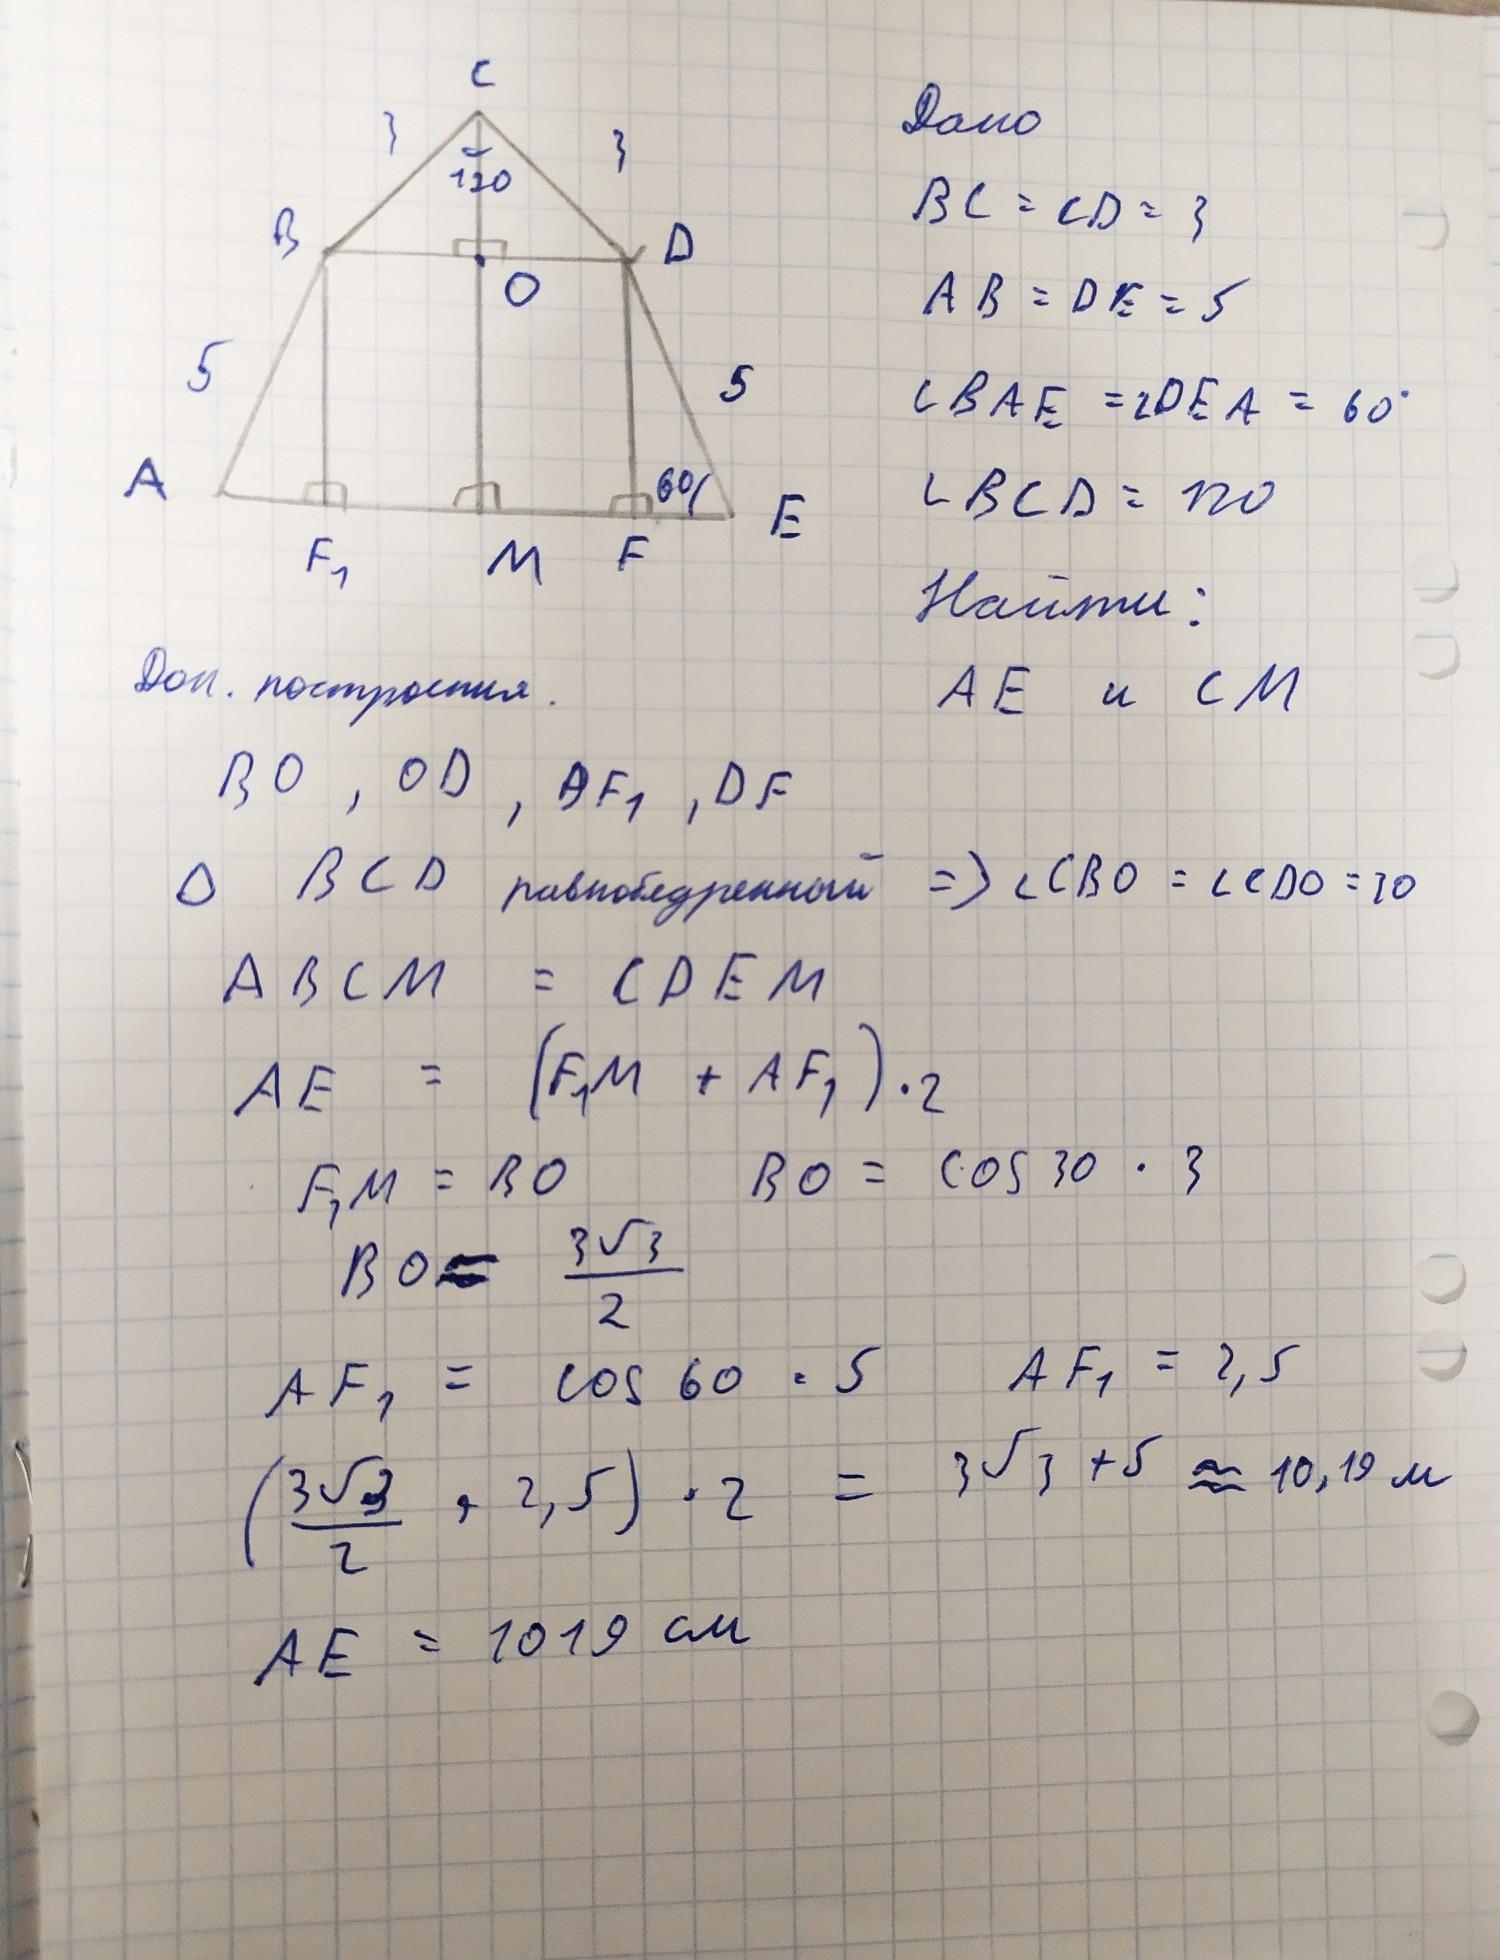 C
3
3
120
B
D
O
5
5
A
60
E
F₁
M
F
Дано
BC = CD = 3
AB = DE = 5
∠BAE = ∠DEA = 60°
∠BCD = 120
Найти:
AE и CM
Доп. построения.
BO, OD, BF₁, DF
Δ BCD равнобедренный => ∠CBO = ∠CDO = 30
ABCM = CDEM
AE = (F₁M + AF₁) · 2
F₁M = BO BO = cos 30 · 3
BO = 3√3/2
AF₁ = cos 60 · 5 AF₁ = 2,5
(3√3/2 + 2,5) · 2 = 3√3 + 5 ≈ 10,19 м
AE = 1019 см